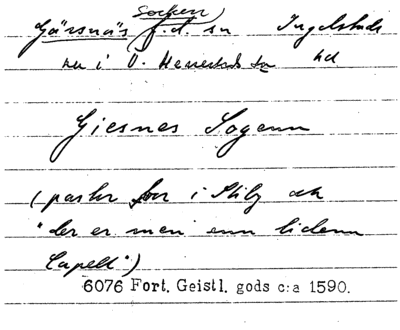 Socken)
Gärsnäs f.d. sn Ingelstads
nu i Ö. Herrestads sn hd
Giesnes Sogenn
(pastor bor i Stiby och
"der er men enn lidenn
Capell")
6076 Fort. Geistl. gods c:a 1590.